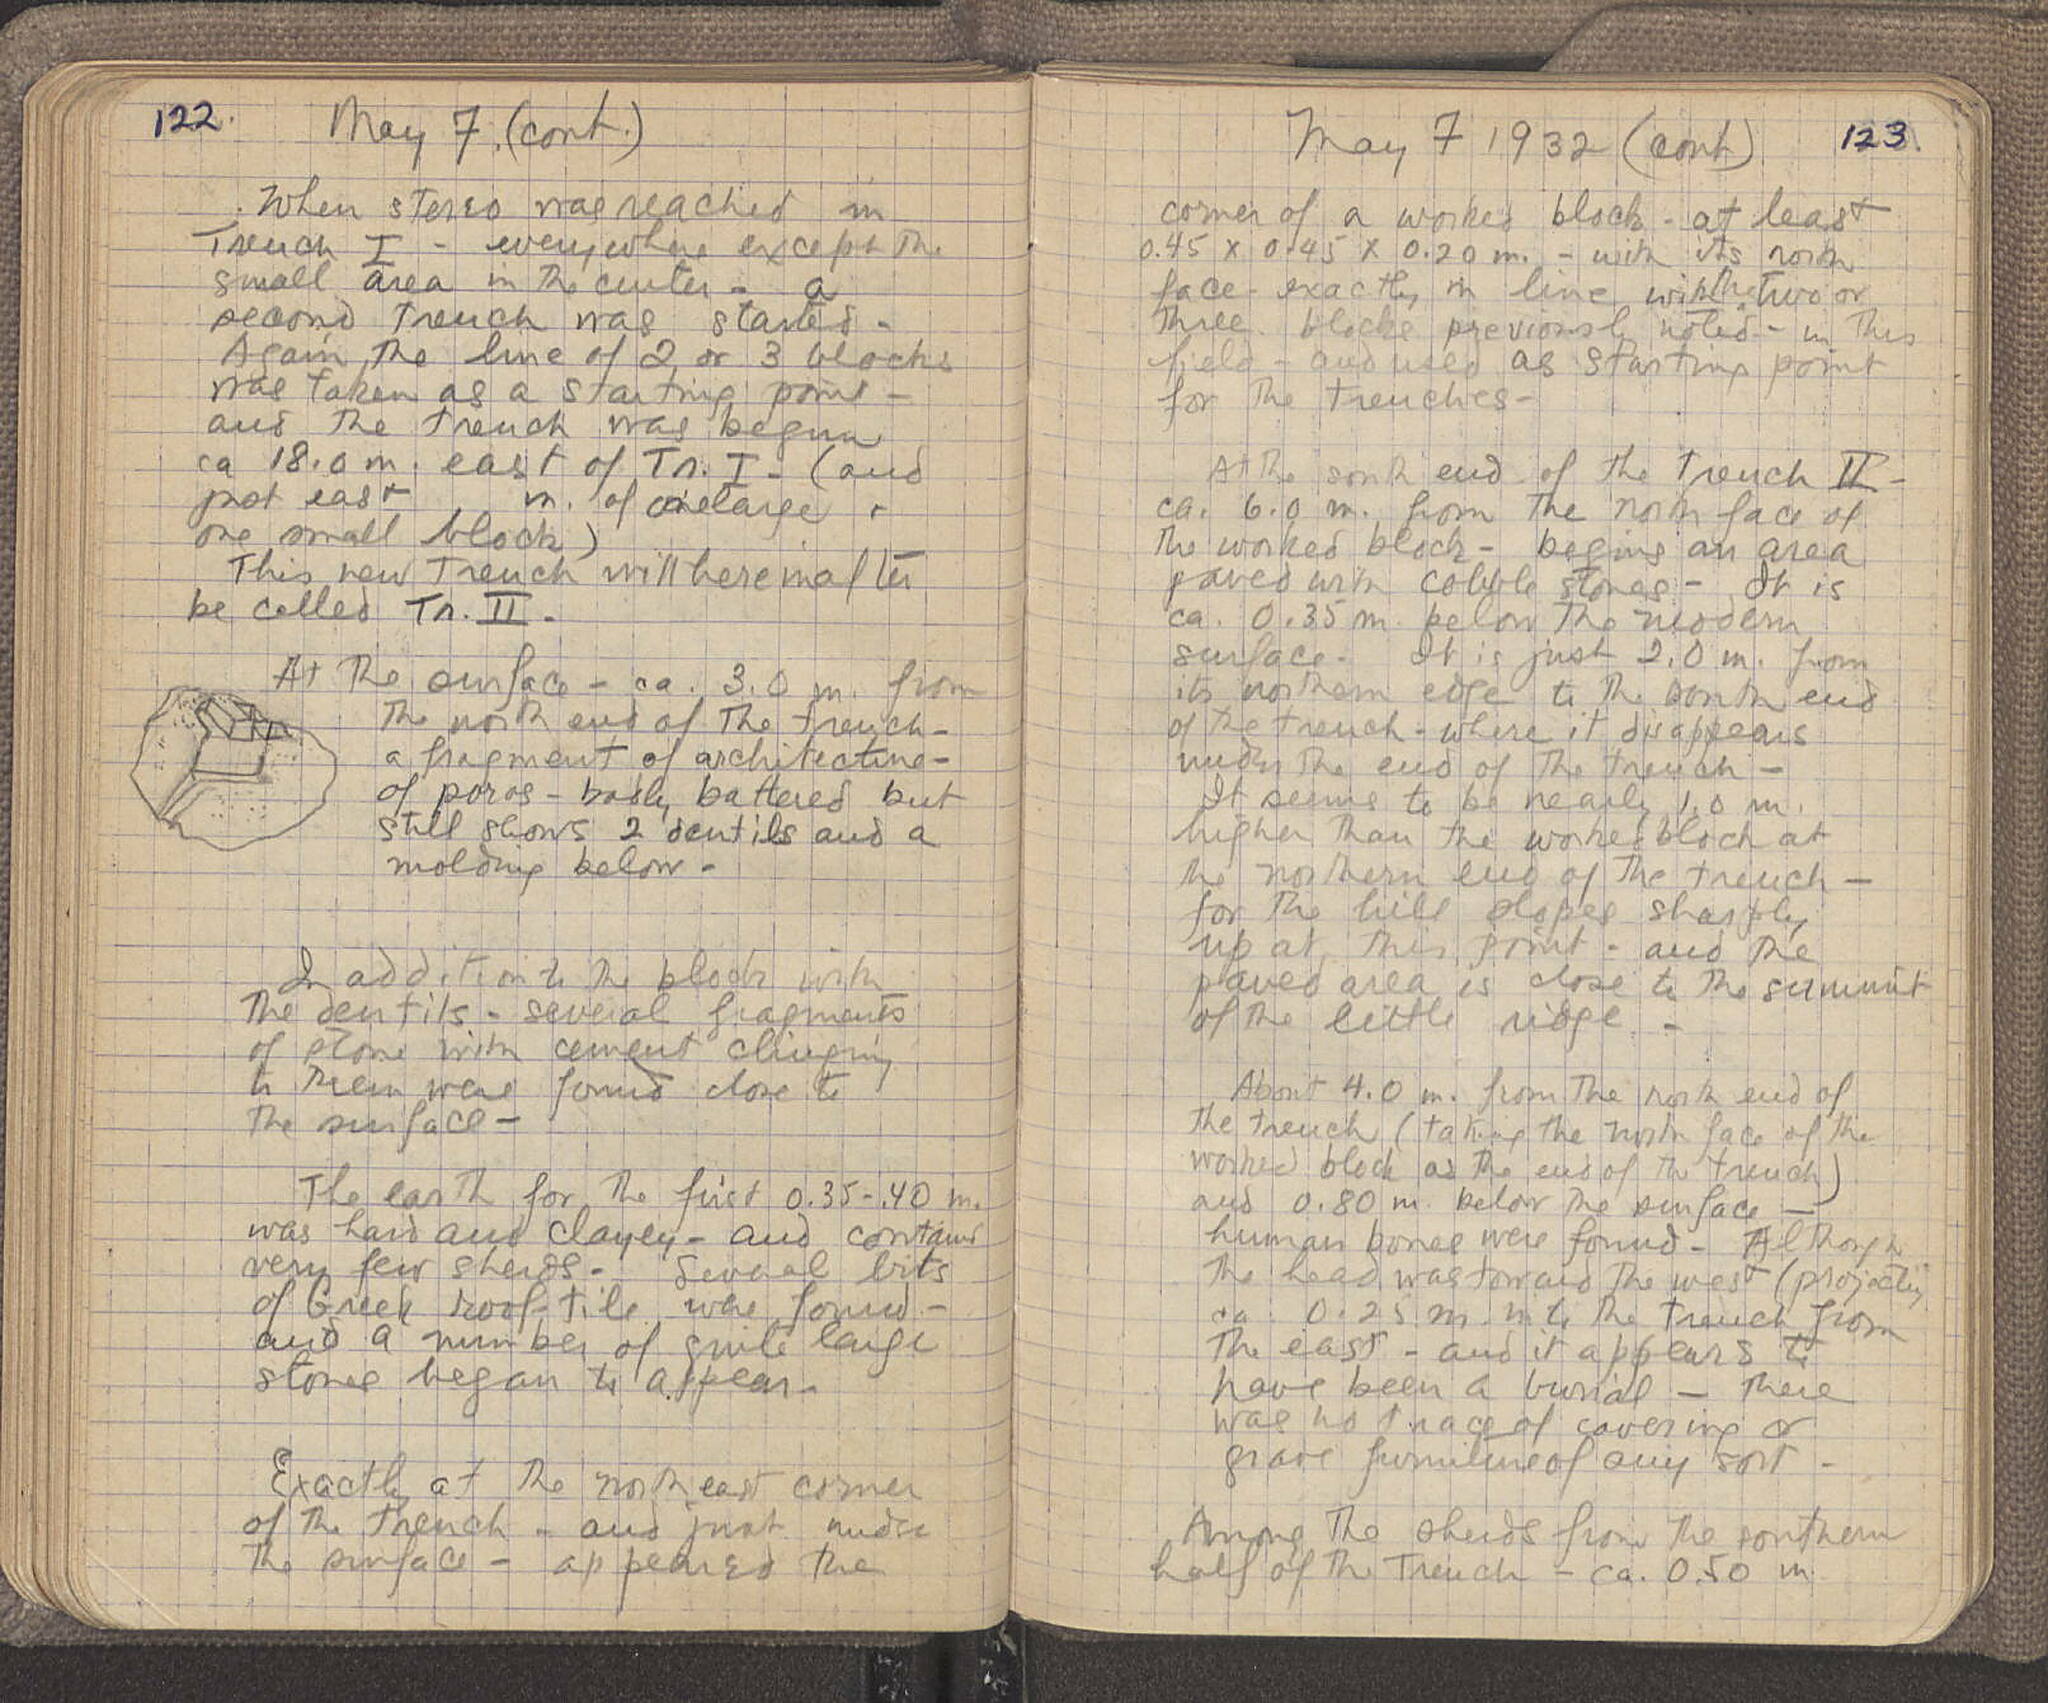 122.
May 7. (cont.)
When stereo was reached in
Trench I - everywhere except the
small area in the center - a
second trench was started -
Again the line of 2 or 3 blocks
was taken as a starting point -
and the trench was begun
ca 18.0 m. east of Tr. I - (and
just east m. of one large +
one small block)
This new trench will hereinafter
be called Tr. II -
At the surface - ca. 3.0 m. from
the north end of the trench -
a fragment of architecture -
of poros - badly battered but
still shows 2 dentils and a
molding below -
In addition to the block with
the dentils - several fragments
of stone with cement clinging
to them were found close to
the surface -
The earth for the first 0.35-.40 m.
was hard and clayey - and contains
very few sherds - Several bits
of Greek roof-tile were found -
and a number of quite large
stones began to appear -
Exactly at the northeast corner
of the trench - and just under
the surface - appeared the
May 7 1932 (cont)
123.
corner of a worked block - at least
0.45 x 0.45 x 0.20 m. - with its north
face - exactly in line with the two or
three blocks previously noted - in this
field - and used as starting point
for the trenches -
At the south end of the trench II -
ca. 6.0 m. from the north face of
the worked block - begins an area
paved with cobble stones - It is
ca. 0.35 m below the modern
surface - It is just 2.0 m. from
its northern edge to the south end
of the trench - where it disappears
under the end of the trench -
It seems to be nearly 1.0 m.
higher than the worked block at
the northern end of the trench -
for the hill slopes sharply
up at this point - and the
paved area is close to the summit
of the little ridge -
About 4.0 m. from the north end of
the trench (taking the north face of the
worked block as the end of the trench)
and 0.80 m. below the surface -
human bones were found - Although
the head was toward the west (projecting
ca. 0.25 m. into the trench from
the east - and it appears to
have been a burial - there
was no trace of covering or
grave furniture of any sort -
Among the sherds from the southern
half of the trench - ca. 0.50 m